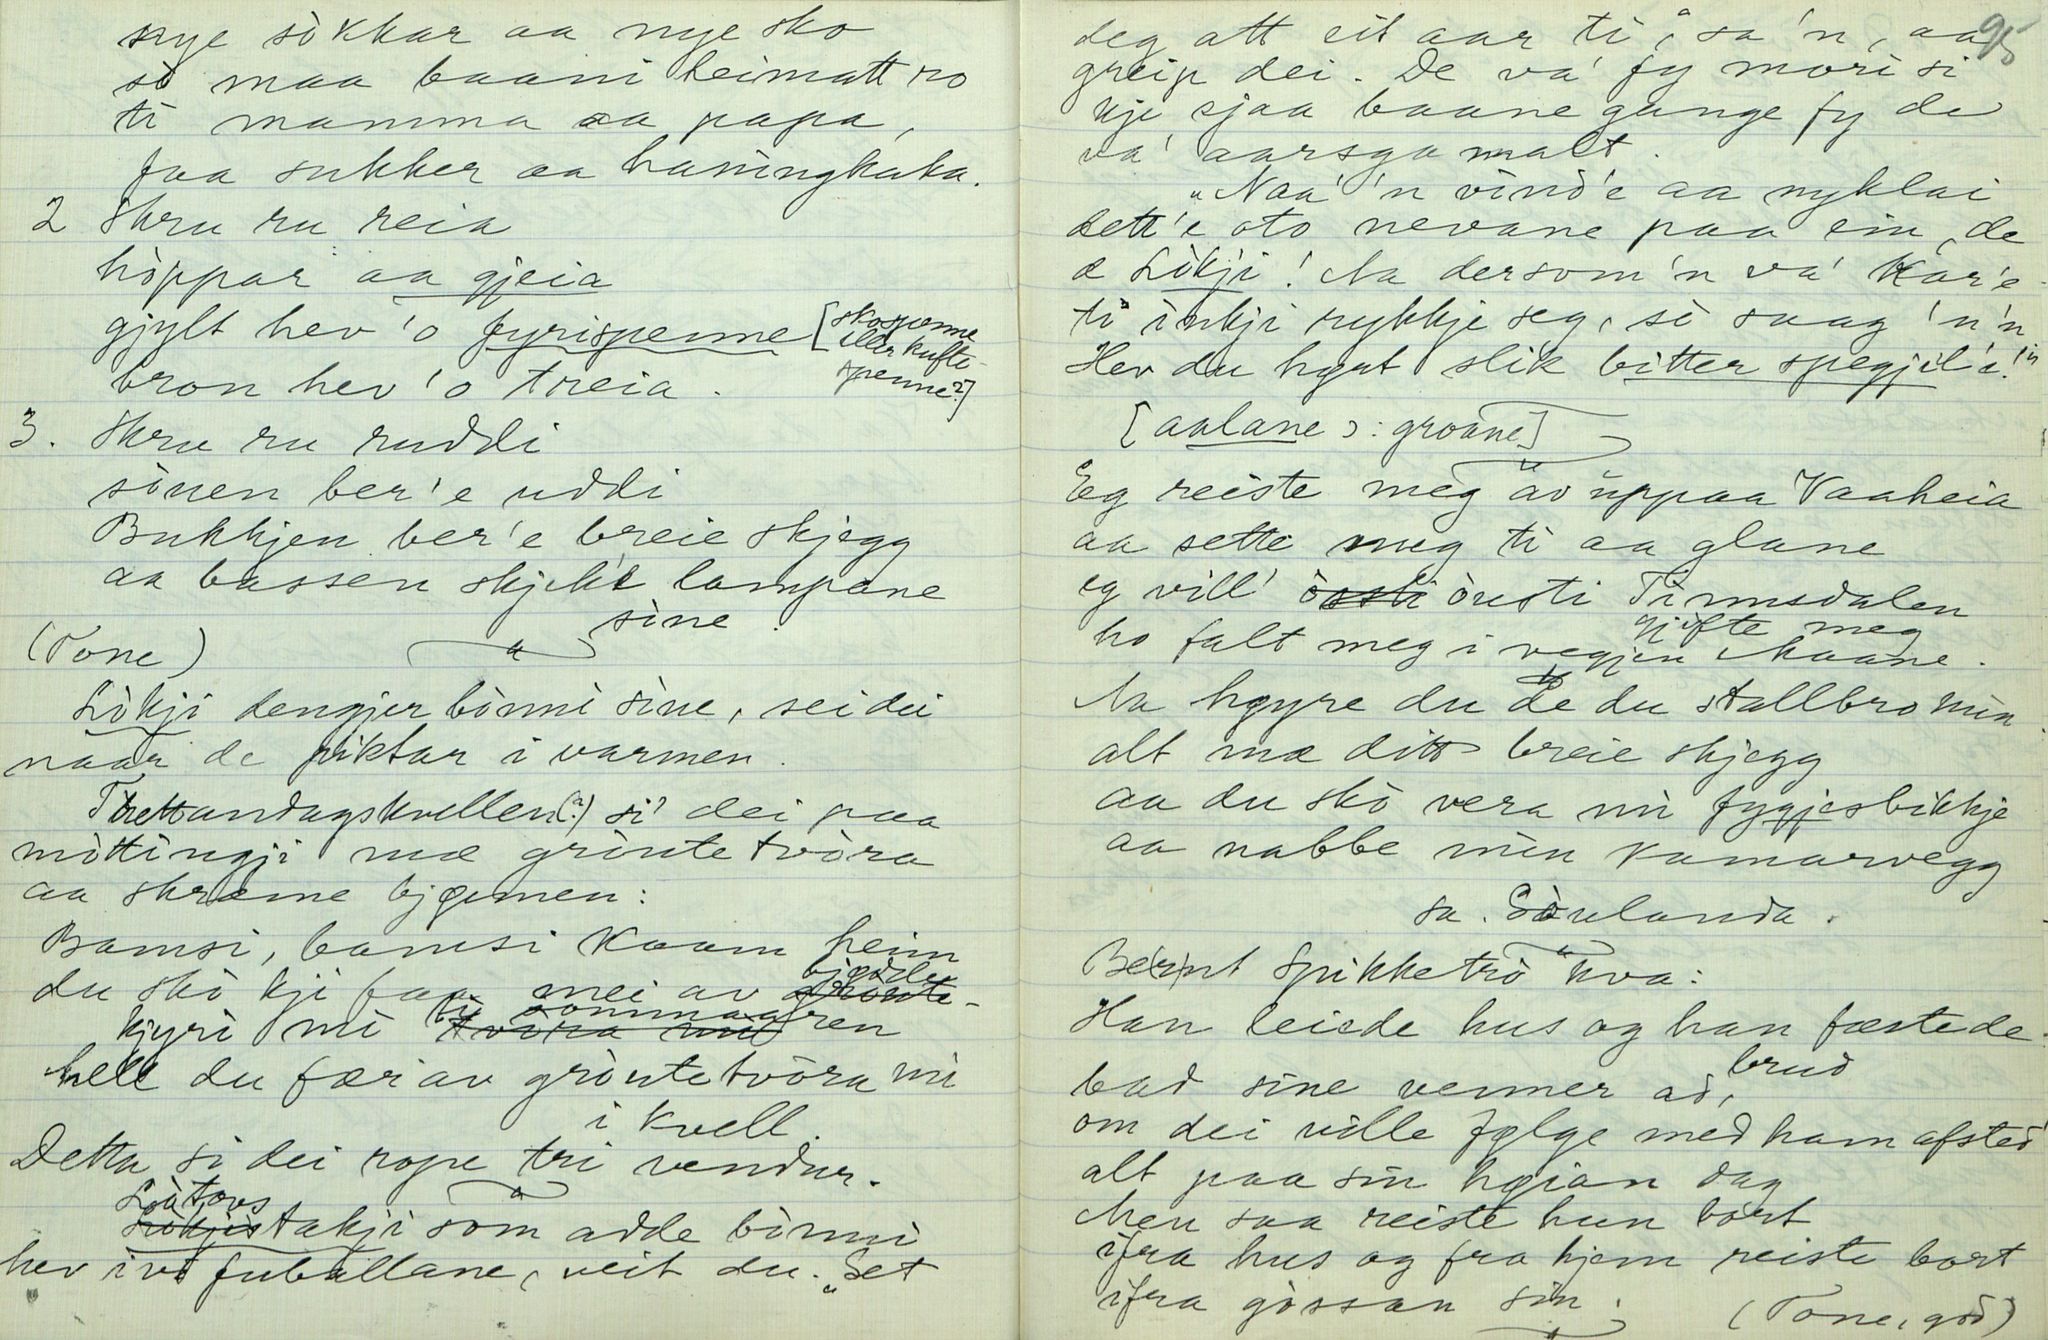 nye sòkkar aa nye sko
sò maa baani heimatt ro
ti mamma aa papa,
faa sukker aa haningkaka.
2 Skru ru reia
hòppar aa gjeia
gjylt hev'o fyrispenne [skospenne
eller kufte-
spenne?]
bron hev'o treia.
3. Skru ru ruddi
sònen ber'e uddi
Bukkjen ber'e breie skjegg
aa bassen skjekk lampane
sine.
(Tone)
Lòkji dengjer bònni sine, sei dei
naar de piktar i varmen.
Trettandagskvellen(?) si' dei paa
mòttingji mæ gròutetvòra
aa skræme bjønnen:
Bamsi, bamsi Kaam heim
du skò kji faa mei av bjødlu
kjyri mi ti sommaaren
hell du fær av gròutetvòra mi
i kvell.
Detta si dei rope tri vendur.
Loàtovs
takji som adde bònni
hev ivi fuballane, veit du. "Set
95
deg att eit aar ti", sa'n, aa
greip dei. De va' fy mori si
kje sjaa baane gange fy de
va' aarsgamalt.
"Naa'n vind'e aa nyklai
dett'e oto nevane paa ein, de
æ Lòkji! Na dersom'n va' kar'e
ti inkji rykkje seg, sò saag'n'n
Hev du høyrt slik bitter spegjil'i!"
[aalane ɔ: groane]
Eg reiste meg av uppaa Vaaheia
aa sette meg ti aa glane
eg vill' òusti Tinnsdalen
gjifte meg
ho falt meg i vegjen Maane.
Na høyre du de du stallbro min
alt mæ ditt breie skjegg
aa du skò vera mi fygjesbikkje
aa nabbe min kamarvegg
sa. Sòulanda.
Be(r)nt Spikketrò kva:
Han leiede hus og han fæstede
brud
bad sine venner ad,
om dei ville følge med ham afsted
alt paa sin høian dag
Men saa reiste hun bort
ifra hus og fra hjem reiste bort
ifra gòssan sin.
(Tone, god)